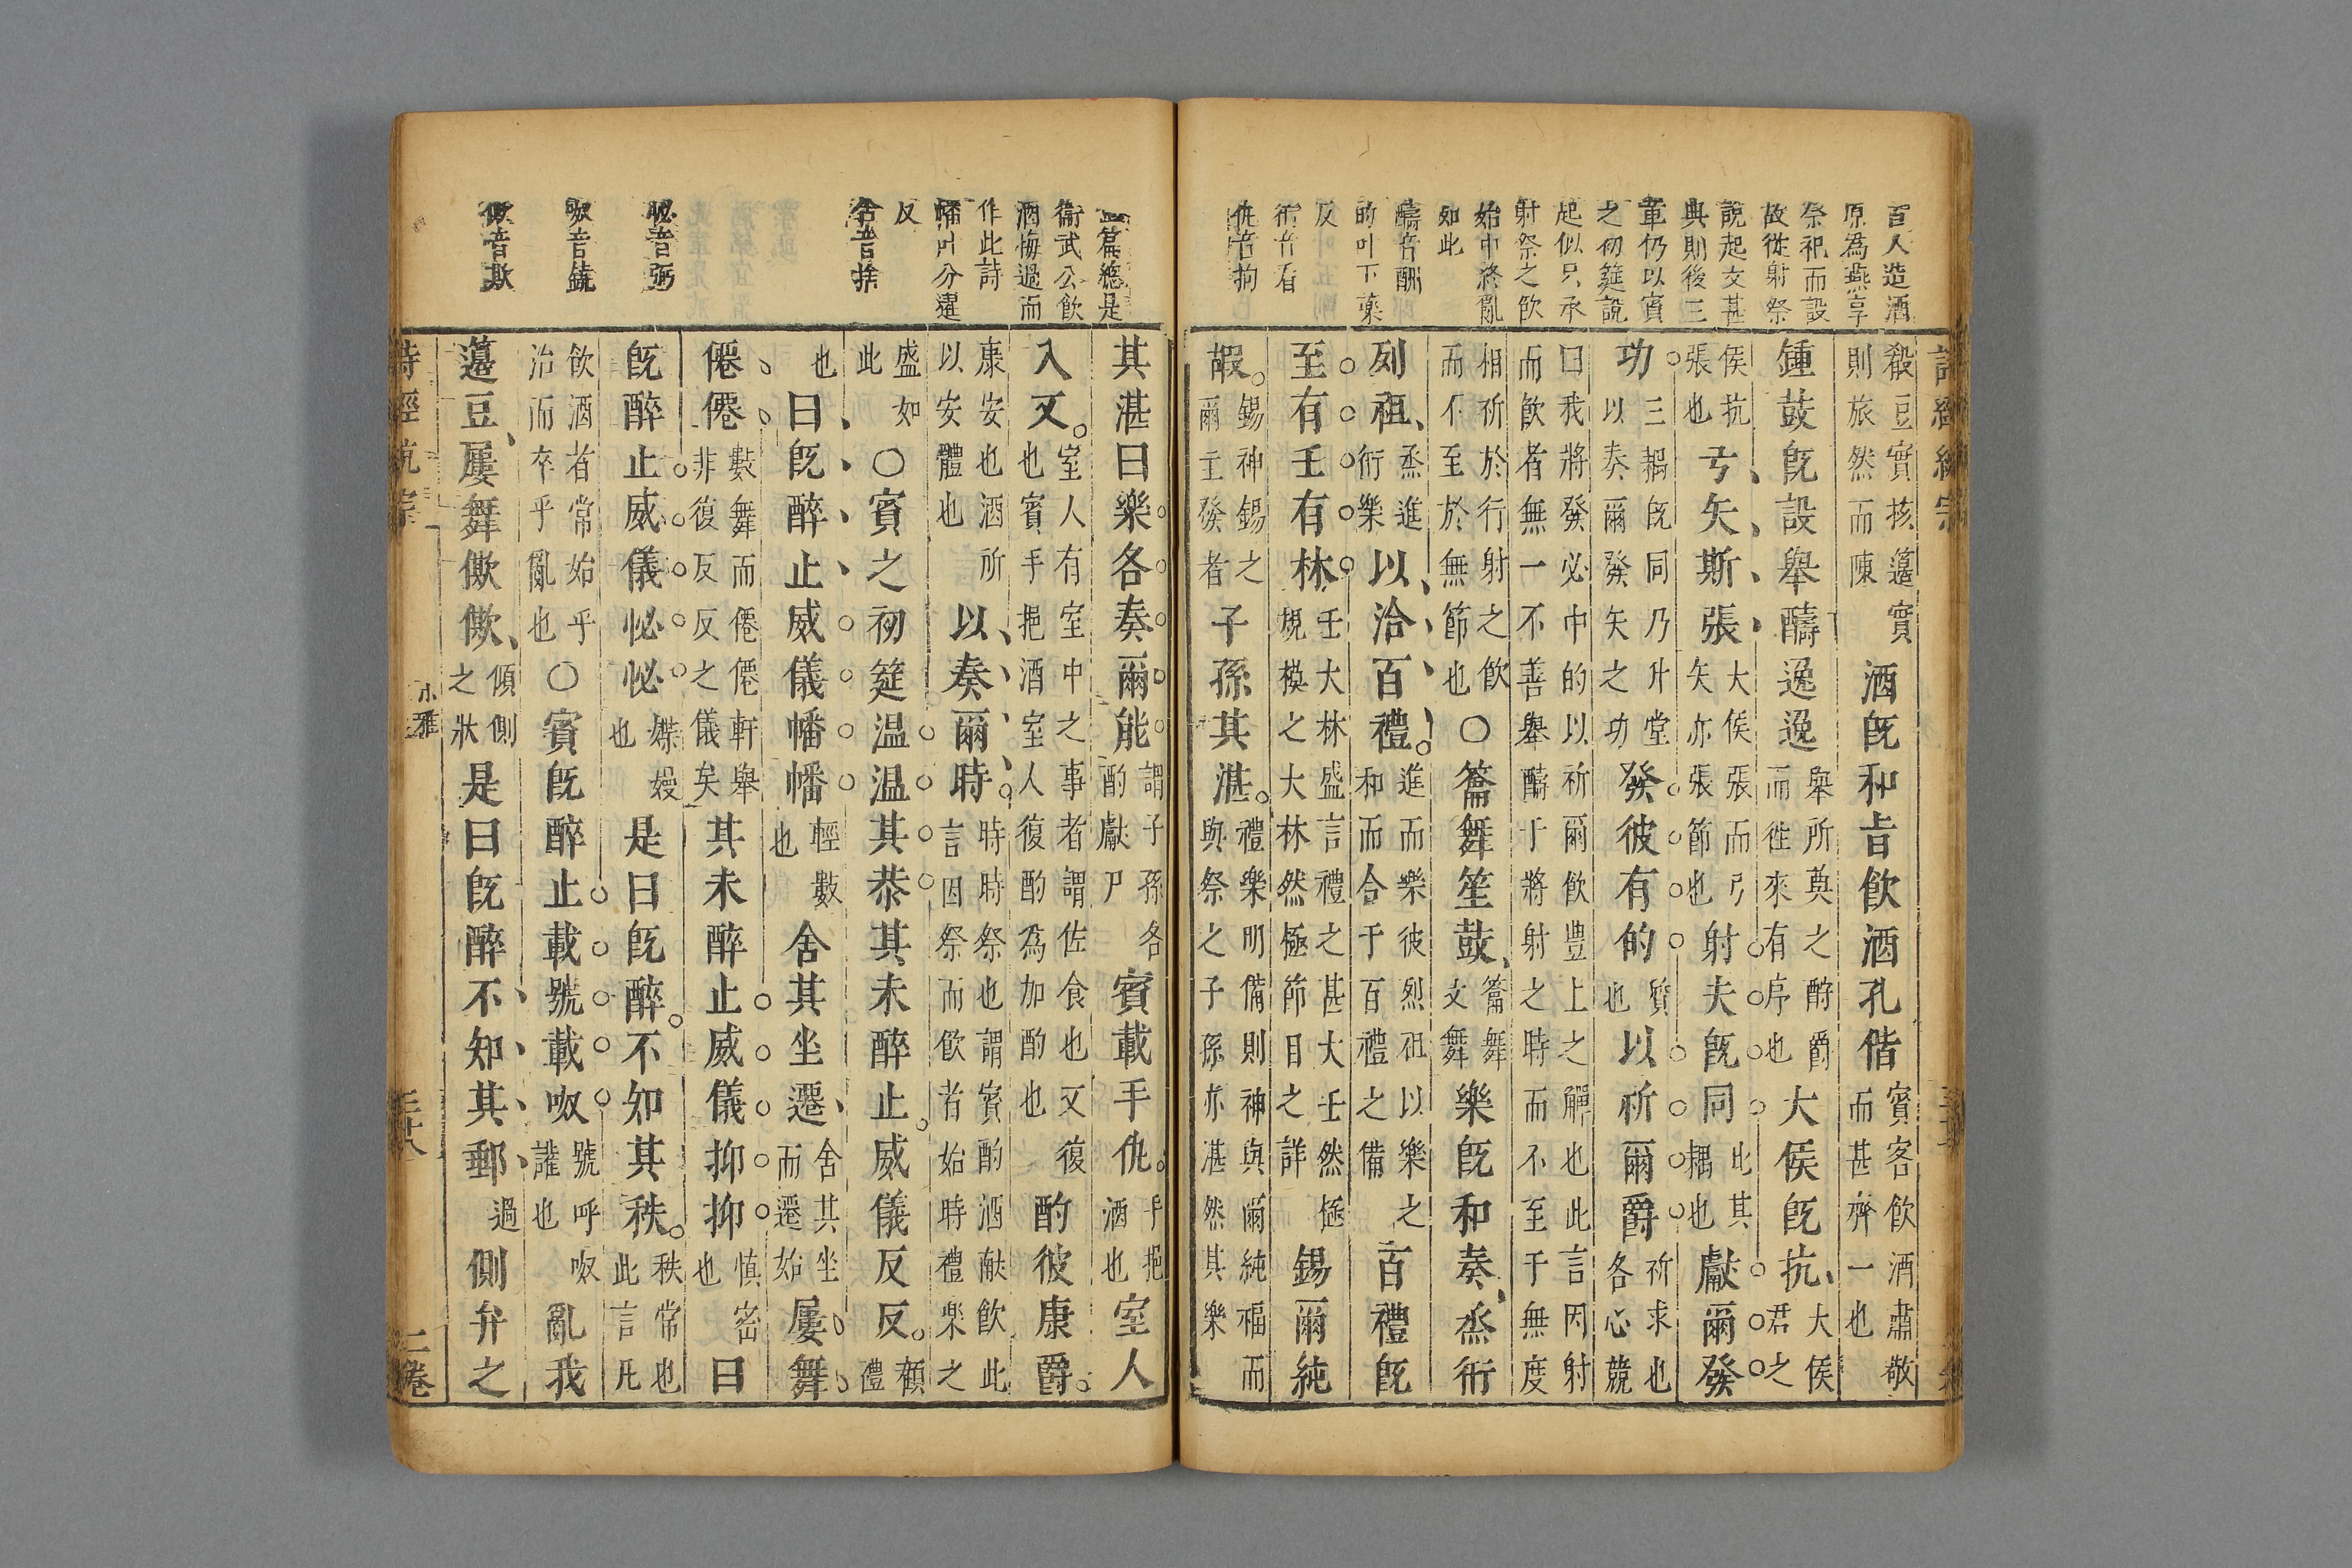 百人造酒
原為燕享
祭祀而設
故從射祭
說起文甚
與則後三
章仍以賓
之初筵說
起似只承
射祭之飲
始中終亂
如此
醻音酬
的叶丁藥
反
衎音看
仇音拘
殽豆實核籩實則旅然而陳酒旣和旨飲酒孔偕賓客飲酒肅敬而甚齊一也
鍾鼓旣設舉醻逸逸舉所奠之酧爵而徃來有序也大侯旣抗大侯君之
侯抗張也弓矢斯張大侯張而弓矢亦張節也射夫旣同此其耦也獻爾發
功三耦旣同乃升堂以奏爾發矢之功發彼有的質也以祈爾爵祈求也各心競
曰我將發必中的以祈爾飲豊上之觶也此言因射而飲者無一不善舉醻于將射之時而不至于無度
相祈於行射之飲而不至於無節也○籥舞笙鼓籥舞文舞樂旣和奏烝衎
列祖烝進衎樂以洽百禮進而樂彼烈祖以樂之和而合于百禮之備百禮旣
至有壬有林壬大林盛言禮之甚大壬然極規模之大林然極節目之詳錫爾純
嘏錫神錫之爾主發者子孫其湛禮樂明備則神與爾純福而與祭之子孫亦湛然其樂
此篇總是
衛武公飲
酒悔過而
作此詩
幡叶分邅
反
舍音捨
怭音弼
呶音鐃
僛音欺
其湛曰樂各奏爾能謂子孫各酌獻尸賓載手仇手挹酒也室人
入又室人有室中之事者謂佐食也又復也賓手挹酒室人復酌為加酌也酌彼康爵
康安也酒所以安體也以奏爾時時時祭也謂賓酌酒献飲此言因祭而飲者始時禮樂之
盛如此○賓之初筵温温其恭其未醉止威儀反反顧禮
也曰旣醉止威儀幡幡輕數也舍其坐遷舍其坐而遷始屢舞
僊僊數舞而僊僊軒舉非復反反之儀矣其未醉止威儀抑抑慎密也曰
旣醉止威儀怭怭媟嫚也是曰旣醉不知其秩秩常也此言凡
飲酒者常始乎治而卒乎亂也○賓旣醉止載號載呶號呼呶讙也亂我
籩豆屢舞僛僛傾側之狀是曰旣醉不知其郵過側弁之
詩經統宗
小雅
三十八
二卷